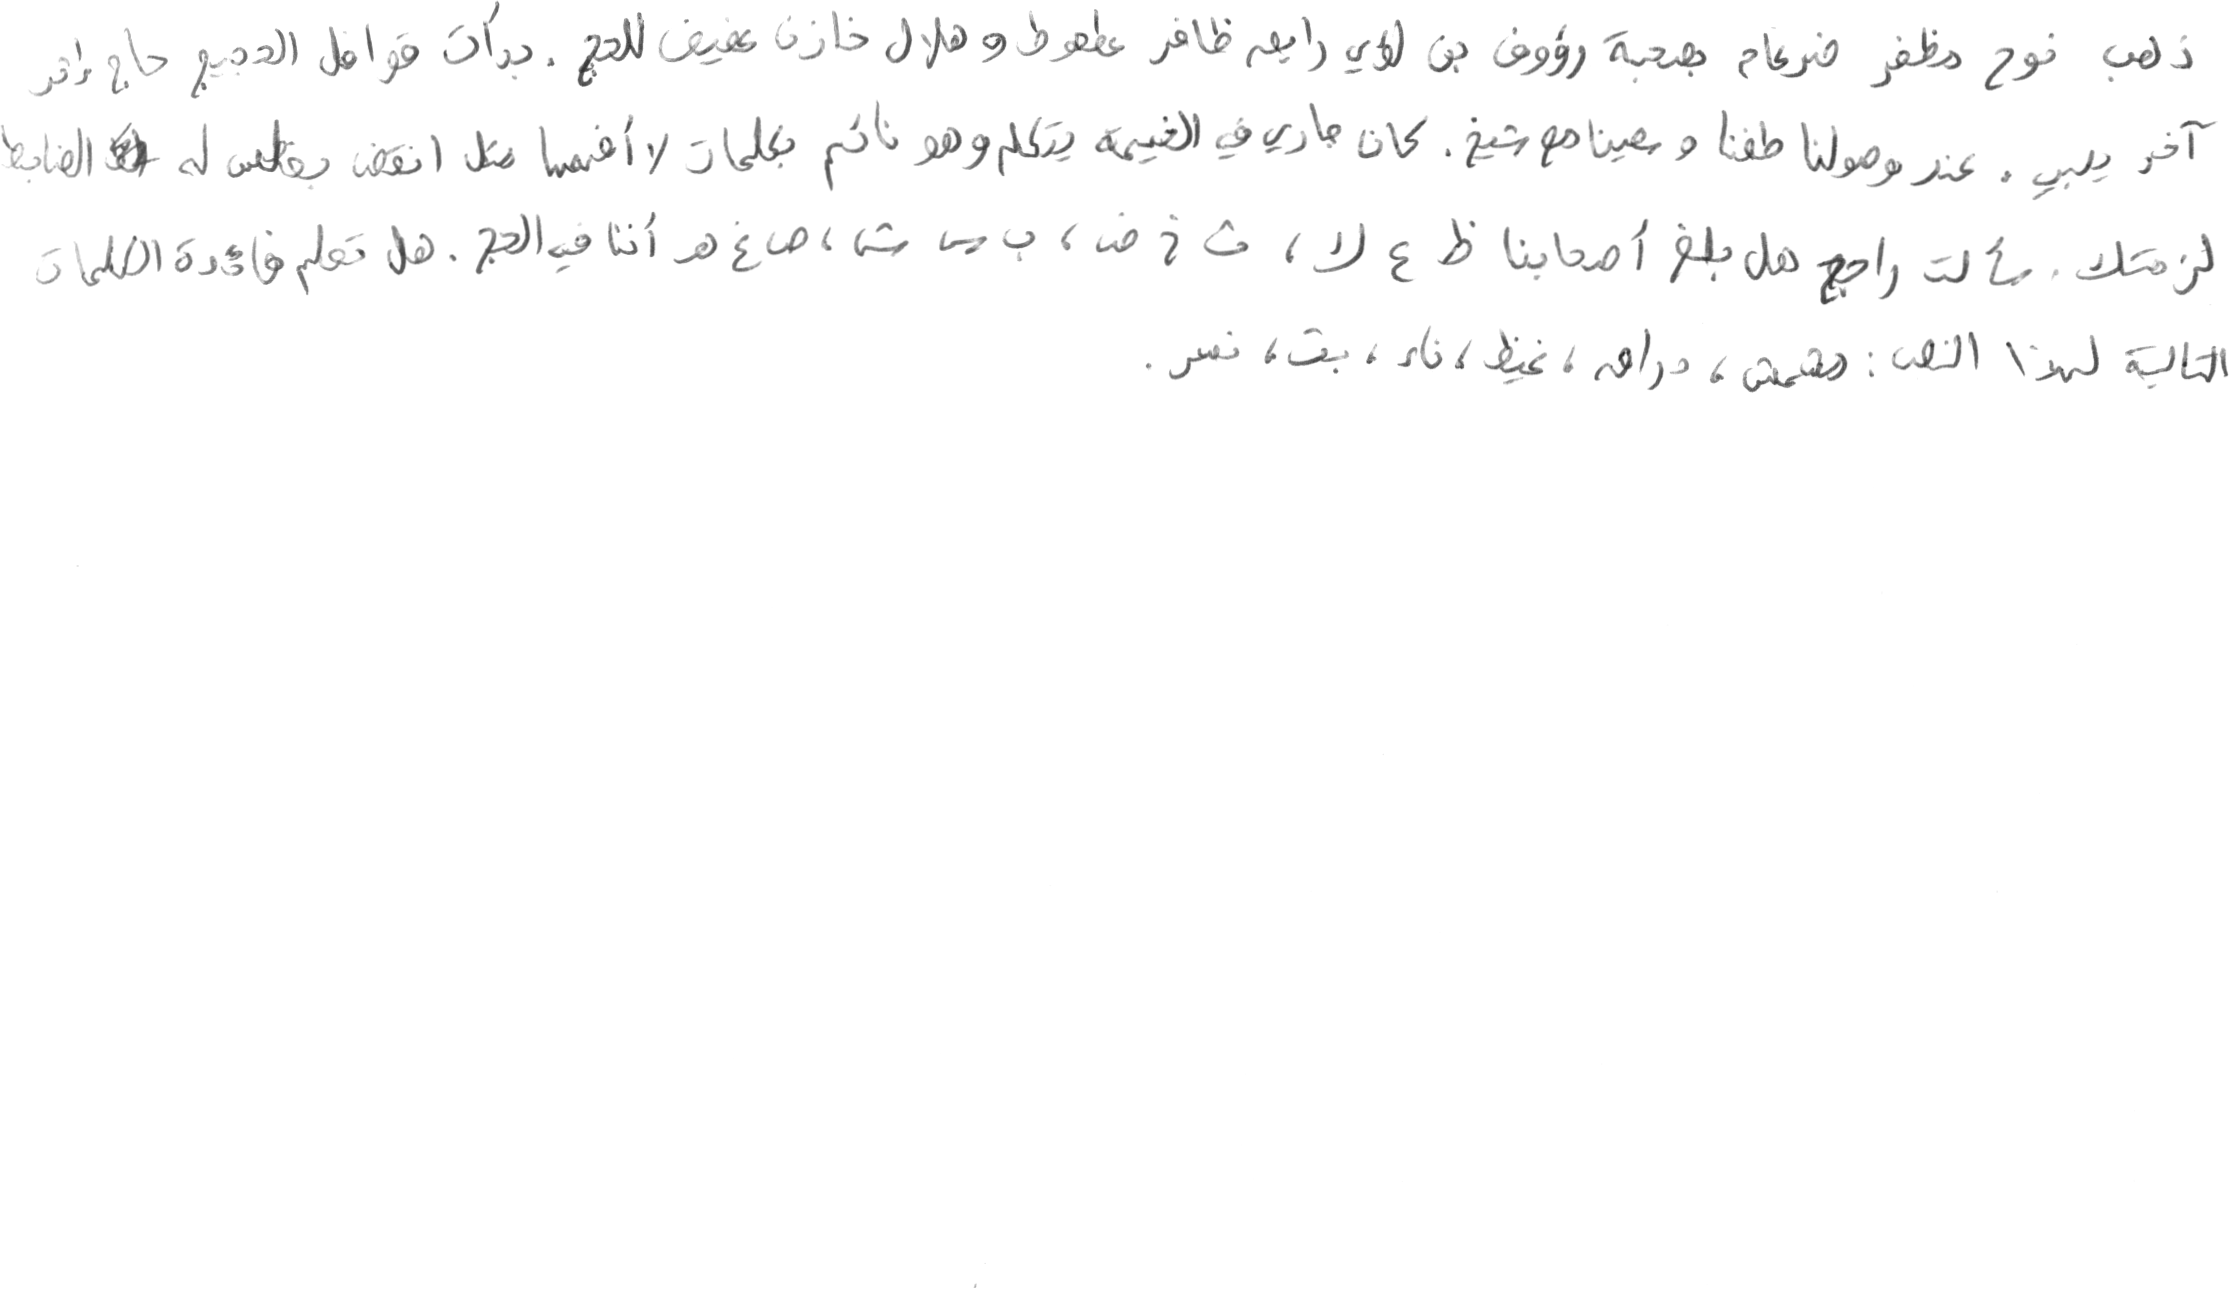 ذهب نوح مظفر ضرغام بصحبة رؤوف بن لؤي رايعه ظافر عطعوط و هلال خازن عفيف للحج . بدأت قوافل الحجيج حاج إثر
آخر يلبي . عند وصولنا طفنا و سعينا مع شيخ . كان جاري في الخيمة يتكلم وهو نائم بكلمات لا أفهمها مثل انقض بغطس له الضابط
لزمتك . سألت راجح هل بلغ أصحابنا ظ ع لا ، ث خ ض ، ب س ش ، ص غ هـ أننا في الحج . هل تعلم فائدة الكلمات
التالية لهذا النص : مشمش ، دراهه ، غيظ ، ناء ، بت ، نصر .